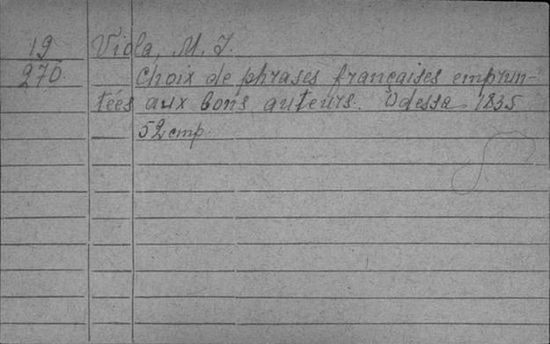 19 Viola, M. J.
270 Choix de phrases françaises emprun-
tées aux bons auteurs. Odessa 1835
52 стр.